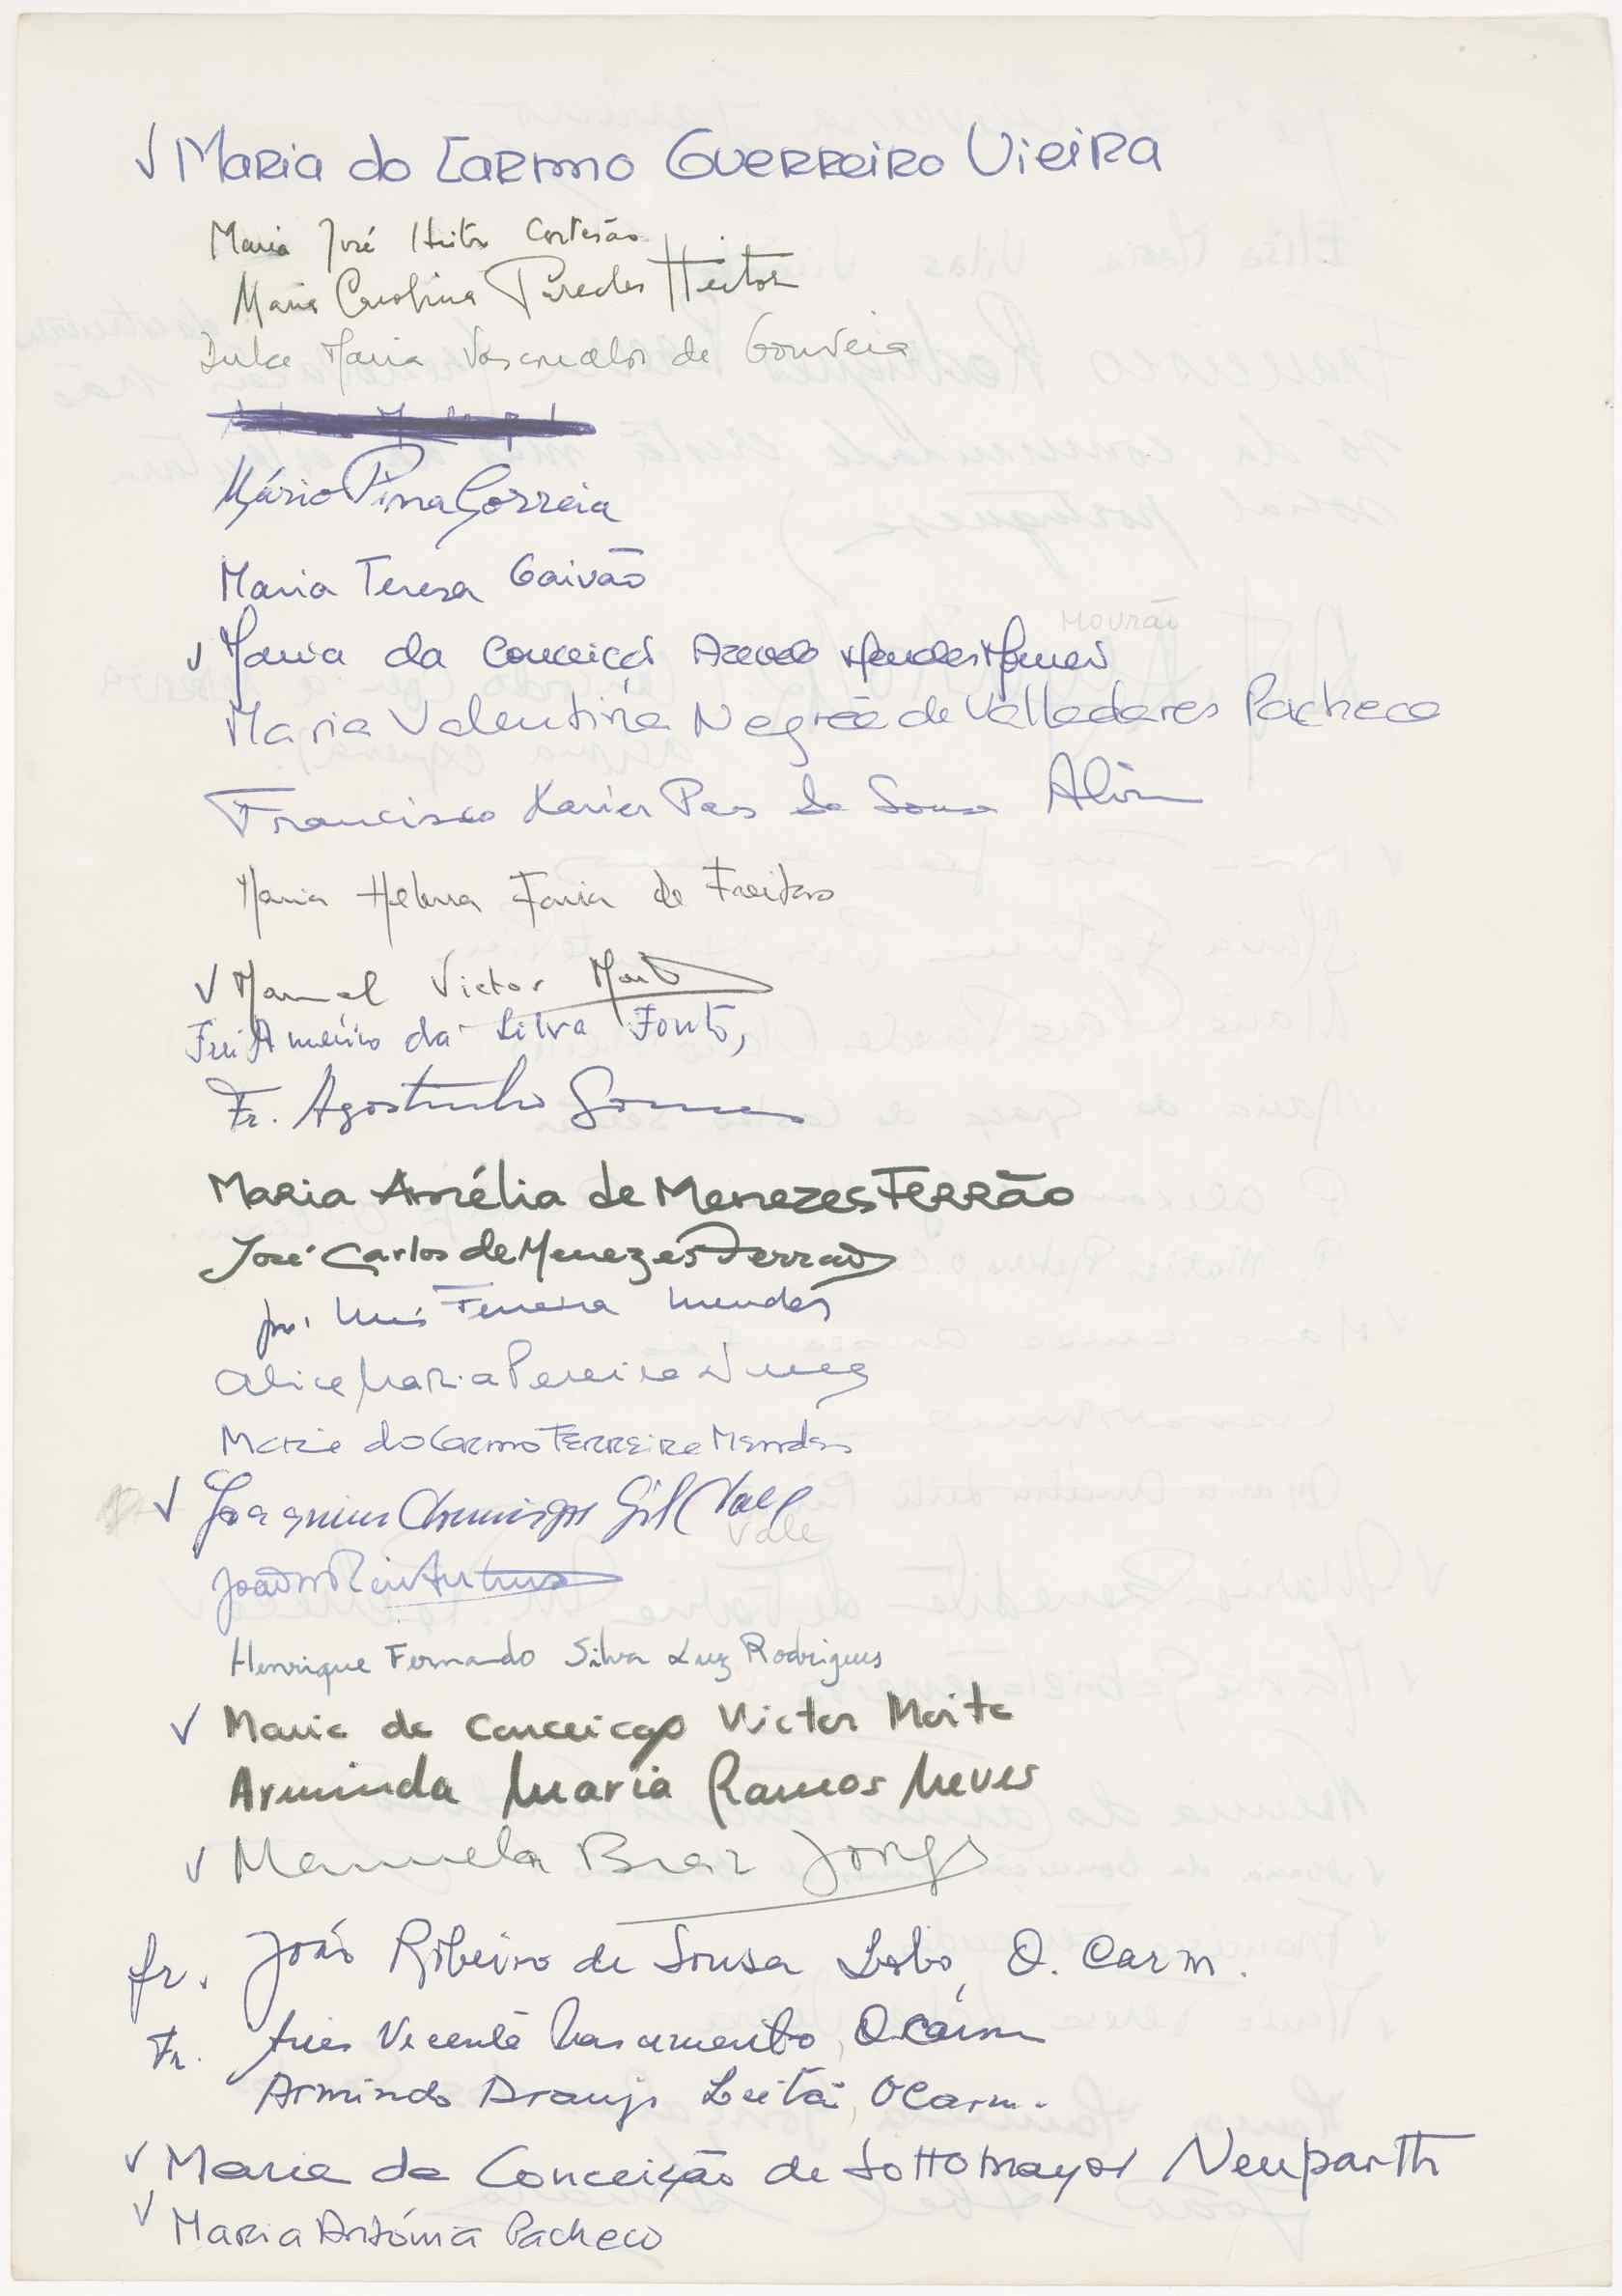 √ Maria do Carmo Guerreiro Vieira
Maria José Heitor Cortesão
Maria Carolina Paredes Heitor
Dulce Maria Vasconcelos de Gouveia
Mário Pina Correia
Maria Teresa Gaivão
Mourão
√ Maria da Conceição Azevedo Mendes
Maria Valentina Negrão de Valladares Pacheco
Francisco Xavier Paes de Sousa
Maria Helena Faria de Freitas
√ Manuel Victor
Frei Américo da Silva
Fr. Agostinho
Maria Amélia de Menezes Ferrão
José Carlos de Menezes Ferrão
Luís Ferreira Mendes
Alice Maria Pereira Nunes
Maria do Carmo Ferreira Mendes
√ Joaquim Domingos Gil Vale
Vale
João
Henrique Fernando Silva Luz Rodrigues
√ Maria da Conceição Victor Moita
Arminda Maria Ramos Neves
√ Manuela Braz Jorge
fr. João Ribeiro de Sousa Lobo, O. Carm.
Fr. Vicente Nascimento, O. Carm
Armindo Araujo Leitão, O Carm.
√ Maria da Conceição de Sottomayor Neuparth
√ Maria Antónia Pacheco